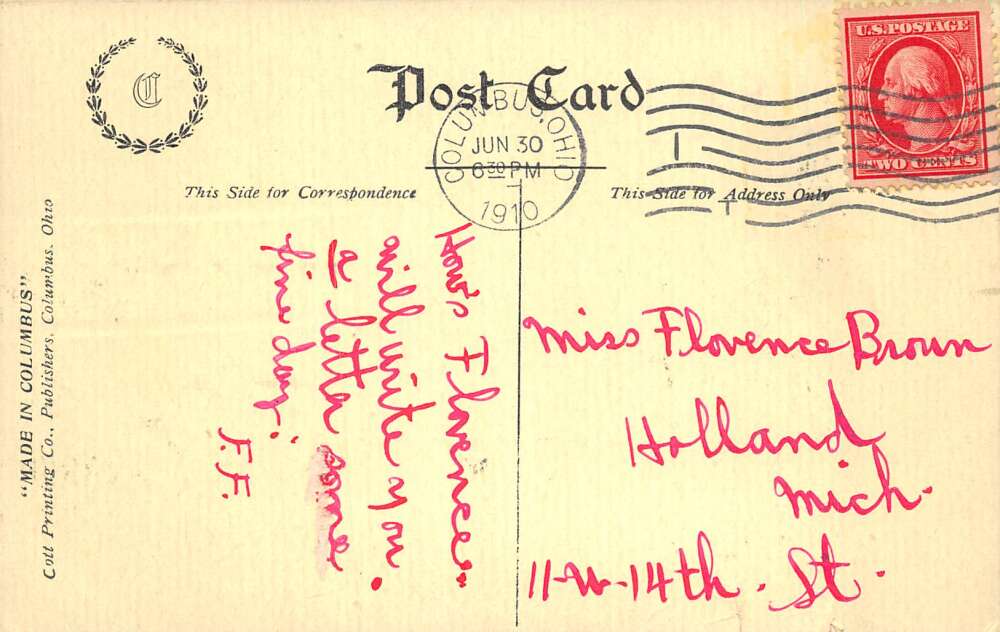 C
Post Card
COLUMBUS, OHIO
JUN 30
6 30 PM
1910
U.S. POSTAGE
TWO CENTS
This Side for Correspondence
This Side for Address Only
"MADE IN COLUMBUS"
Cott Printing Co., Publishers, Columbus, Ohio
How's Florence.
will write you
a letter some
fine day.
F.F.
Miss Florence Brown
Holland
Mich.
11-W-14th. St.